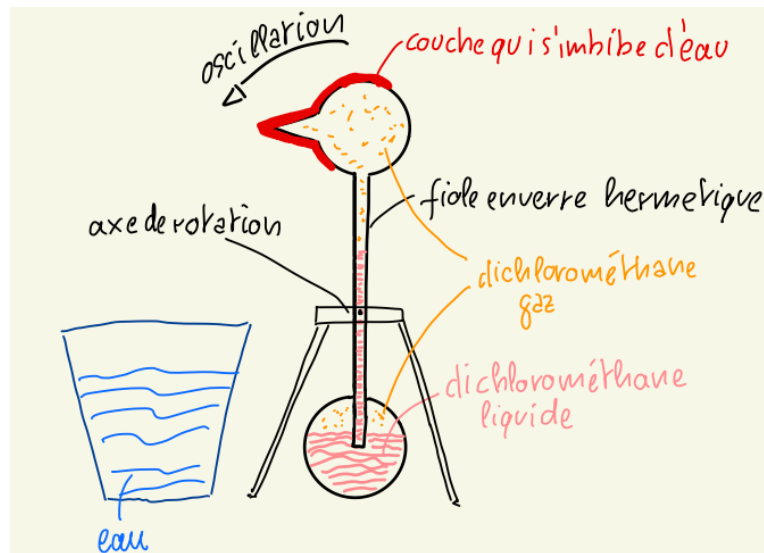 oscillation
couche qui s'imbibe d'eau
fiole en verre hermetique
axe de rotation
dichlorométhane
gaz
dichlorométhane
liquide
eau